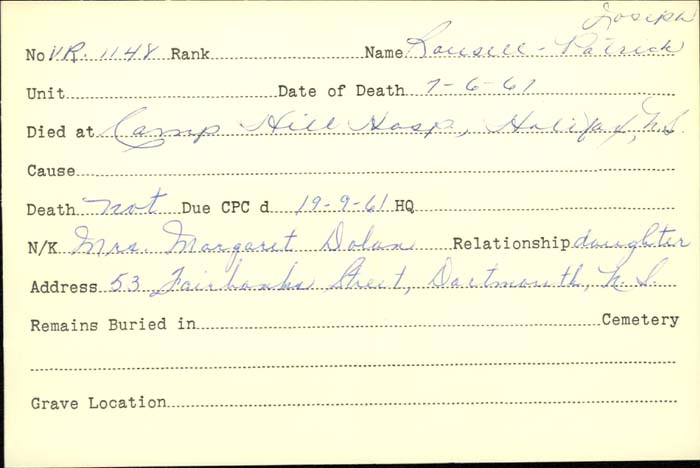 Joseph
No VR. 1148 Rank Name Rousell - Patrick
Unit Date of Death 7-6-61
Died at Camp Hill Hosp, Halifax, N.S.
Cause
Death not Due CPC d 19-9-61 HQ
N/K Mrs. Margaret Dolan Relationship daughter
Address 53 Fairbanks Street, Dartmouth, N.S.
Remains Buried in Cemetery
Grave Location